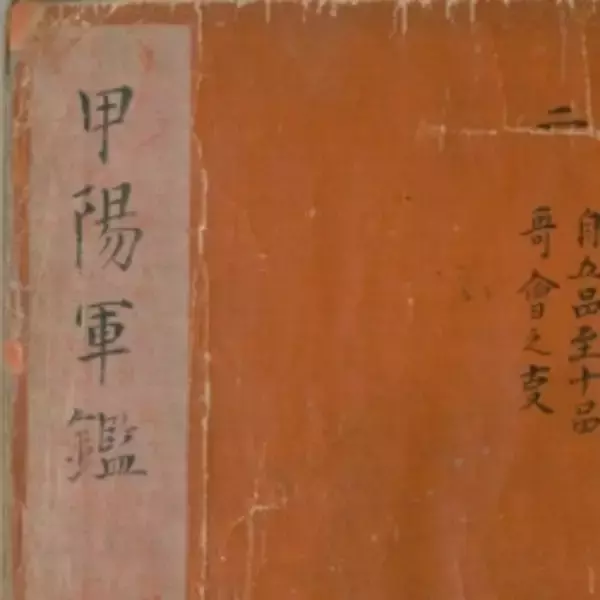 甲陽軍鑑
二
自五品至十品
哥會之叓